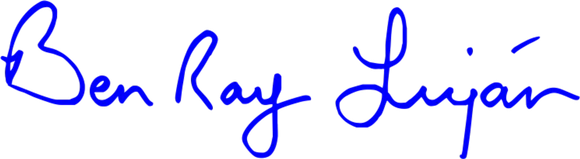 Ben Ray Luján